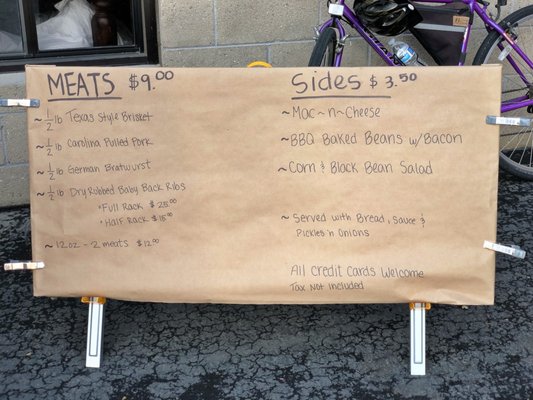 MEATS $9.00
~ 1/2 lb Texas Style Brisket
~ 1/2 lb Carolina Pulled Pork
~ 1/2 lb German Bratwurst
~ 1/2 lb Dry Rubbed Baby Back Ribs
*Full Rack $25.00
*Half Rack $15.00
~ 12oz - 2 meats $12.00
Sides $3.50
~Mac~n~Cheese
~BBQ Baked Beans w/Bacon
~Corn & Black Bean Salad
~ Served with Bread, Sauce &
Pickles n Onions
All Credit Cards Welcome
Tax Not Included